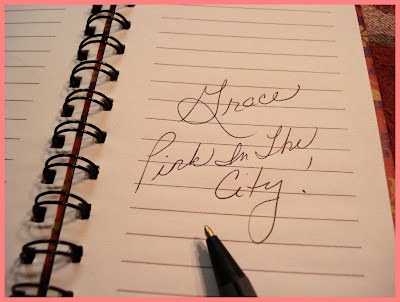 Grace
Pink In The
City!